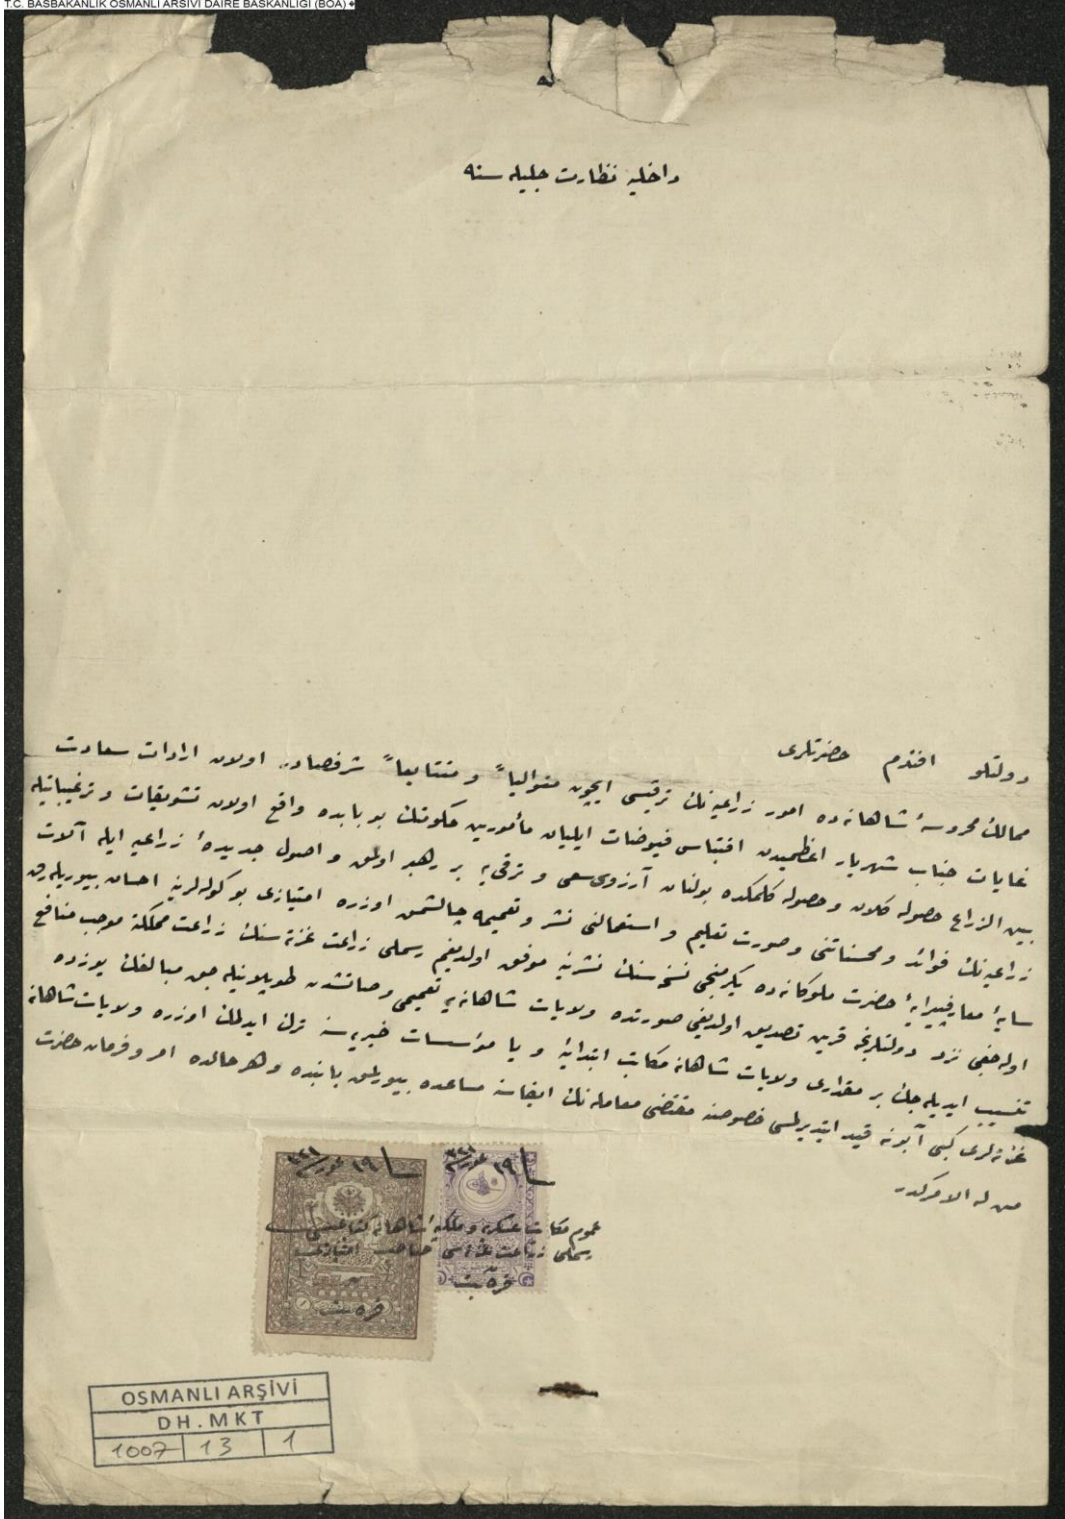 T.C. BASBAKANLIK OSMANLI ARSIVI DAIRE BASKANLIGI (BOA)
داخلیه نظارت جلیله سنه
دولتلو افندم حضرتلری
ممالك محروسهٔ شاهانه ده امور زراعیه نك ترقیسی ایچون متوالیاً و متتابعاً شرفصادر اولان ارادات سعادت
غایات جناب شهریار اعظمیدن اقتباس فیوضات ایلیان مأمورین حكومتك بو بابده واقع اولان تشویقات و ترغیباتیله
بین الزراع حصوله كلان و حصوله كلمكده بولنان آرزوی سعی و ترقی یه بر رهبر اولمق و اصول جدیدهٔ زراعیه ایله آلات
زراعیه نك فوائد و محسناتنی و صورت تعلیم و استعمالنی نشر و تعمیمه چالشمق اوزره امتیازی بو كوله لرینه احسان بیوریله رق
سایهٔ معارفپیرایهٔ حضرت ملوكانه ده یكرمنجی نسخه سنك نشرینه موفق اولدیغم رسملی زراعت غزته سنك زراعت مملكته موجب منافع
اوله جغی نزد دولتلرنجه قرین تصدیق اولدیغی صورتده ولایات شاهانه یه تعمیمی و صاتشدن طوپلانیله جق مبالغك یوزده
تنسیب ایدیله جك بر مقداری ولایات شاهانه مكاتب ابتدائیهٔ و یا مؤسسات خیریه سنه ترك ایدلمك اوزره ولایات شاهانه
غزته لری كبی آبونه قید ایتدیرلمسی خصوصنه مقتضی معامله نك ایفاسنه مساعده بیورلمق بابنده و هر حالده امر و فرمان حضرت
من له الامركدر
عموم مكاتب عسكریه و ملكیهٔ شاهانه كتابجیسی
رسملی زراعت غزته سی صاحب امتیازی
قره بت
قره بت
OSMANLI ARŞİVİ
DH.MKT
1007 13 1